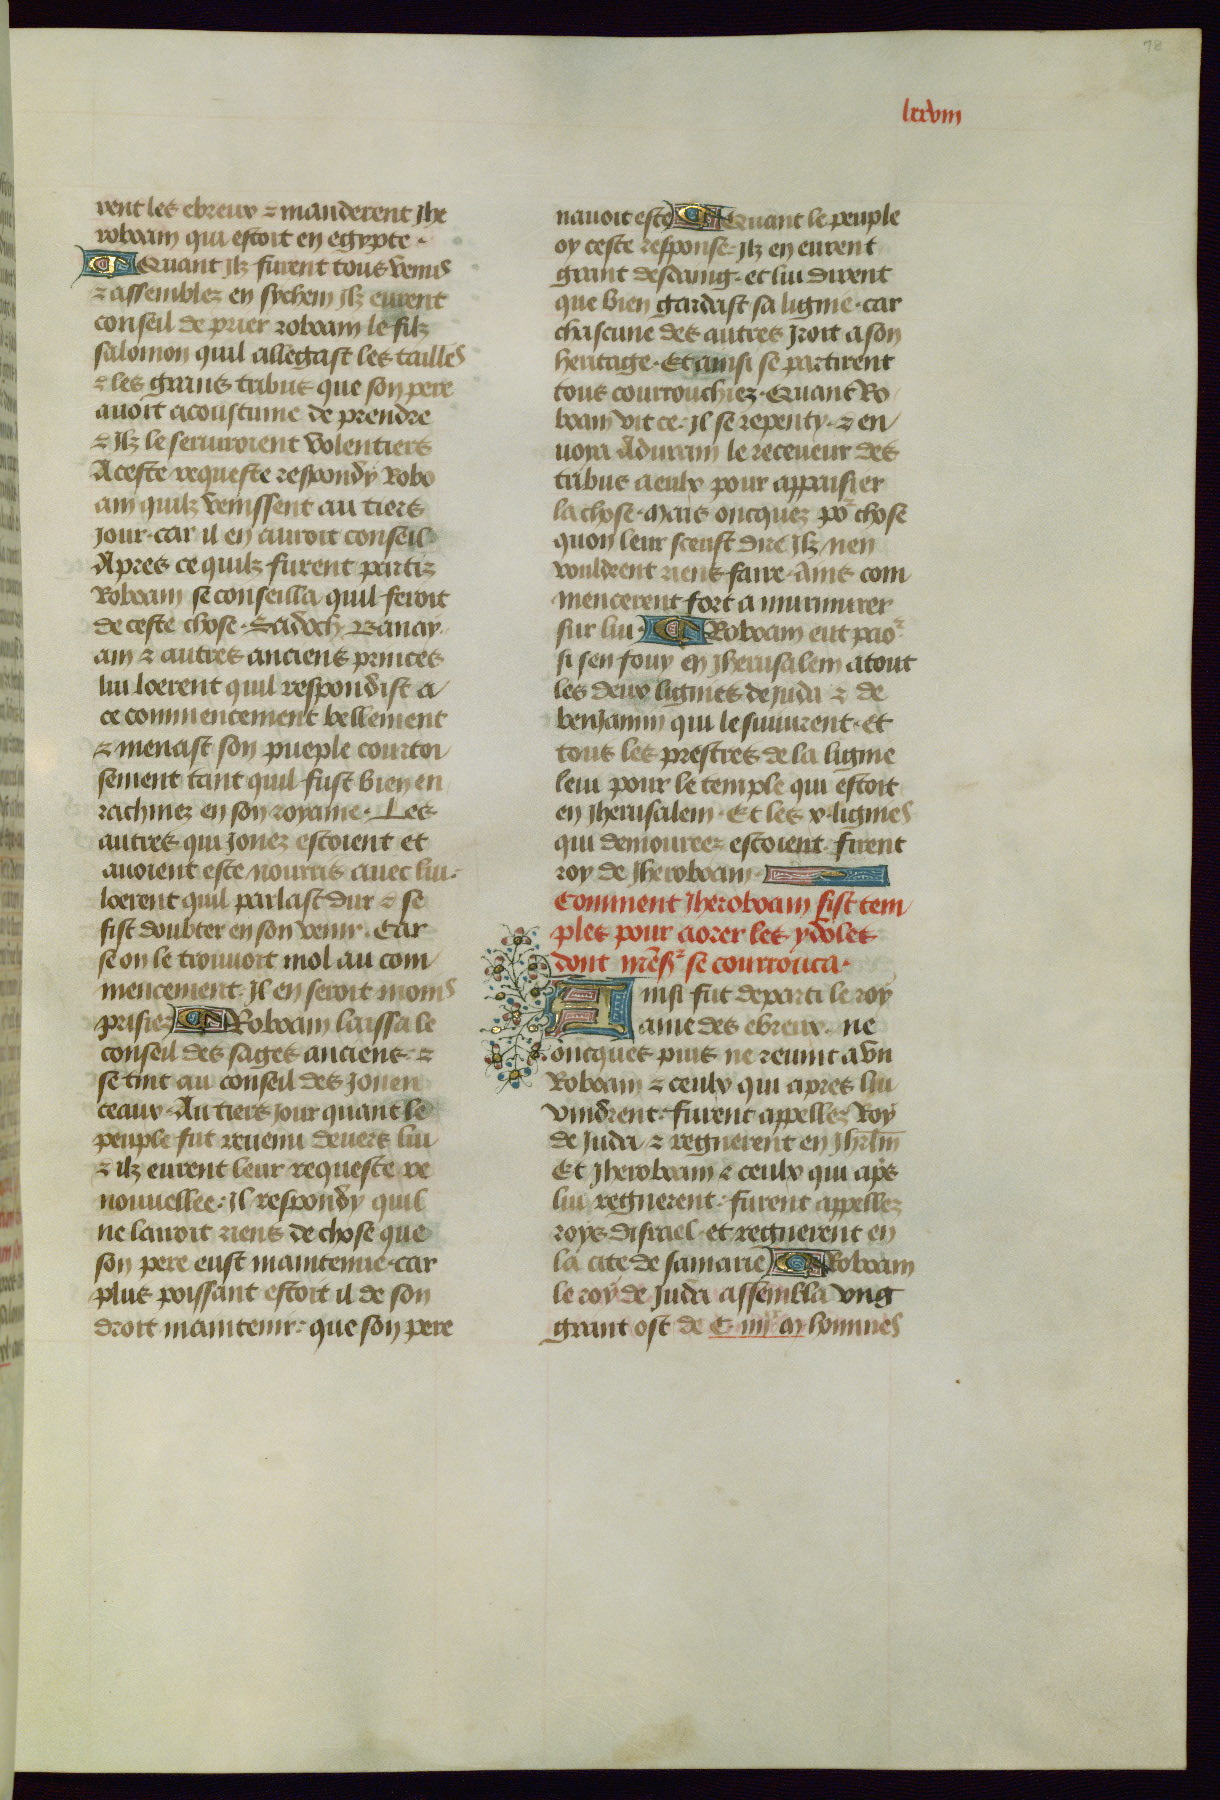 78
lxxviii
rent les ebreux ⁊ manderent Jhe
roboam qui estoit en egypte ·
Quant Jlz furent tous venus
⁊ assemblez en sychem Jlz eurent
conseil de prier roboam le filz
salomon quil allegast les tailles
⁊ les grans tribus que son pere
auoit acoustume de prendre
⁊ Jlz le seruiroient volentiers
A ceste requeste respondy Robo
am quilz venissent au tiers
jour · car il en auroit conseil
Apres ce quilz furent partiz
Roboam se conseilla quil feroit
de ceste chose · Sadoch Banay
am ⁊ autres anciens princes
lui loerent quil respondist a
ce commencement bellement
⁊ menast son pueple courtoi
sement tant quil fust bien en
rachinez en son royame · Les
autres qui Jonez estoient et
auoient este nourris auec lui ·
loerent quil parlast dur ⁊ se
fist doubter en son venir · Car
se on le trouuoit mol au com
mencement · Jl en seroit moins
prisiez Roboam laissa le
conseil des sages anciens · ⁊
se tint au conseil des Jonen
ceaux · Au tiers Jour quant le
peuple fut reuenu deuers lui
⁊ ilz eurent leur requeste re
nouuellee · Jl respondy quil
ne lairoit riens de chose que
son pere eust maintenue · car
plus poissant estoit il de son
droit maintenir · que son pere
nauoit este Quant le peuple
oy ceste response · Jlz en eurent
grant desdaing · et lui dirent
que bien gardast sa lignie · car
chascune des autres Jroit a son
heritage · Et ainsi se partirent
tous courrouchiez · Quant Ro
boam vit ce · Jl se repenty · ⁊ en
uoya Aduram le receueur des
tribus a eulx pour appaisier
la chose · Mais oncquez po⁹ chose
quon leur sceust dire Jlz nen
vouldrent riens faire · Ains com
mencerent fort a murmurer
sur lui · Roboam eut pao⁹
si sen fouy en Jherusalem atout
les deux lignies de Juda ⁊ de
benjamin qui le suiuirent · et
tous les prestres de la lignie
leui pour le temple qui estoit
en Jherusalem · Et les x · lignies
qui demourees estoient · firent
roy de Jheroboam ·
Comment Jheroboam fist tem
ples pour aorer les ydoles
dont nr̄e sr̄ se courrouca ·
Ainsi fut departi le roy
ame des ebreux · ne
oncques puis ne reuint a vn
Roboam ⁊ ceulx qui apres lui
vindrent · furent appellez Roy
de Juda ⁊ regnerent en Jhrl̄m
Et Jheroboam ⁊ ceulx qui ap̄s
lui regnerent · furent appellez
roys disrael · et regnerent en
la cite de samarie Roboam
le roy de Juda assembla vng
grant ost de C · iiij xx M hommes